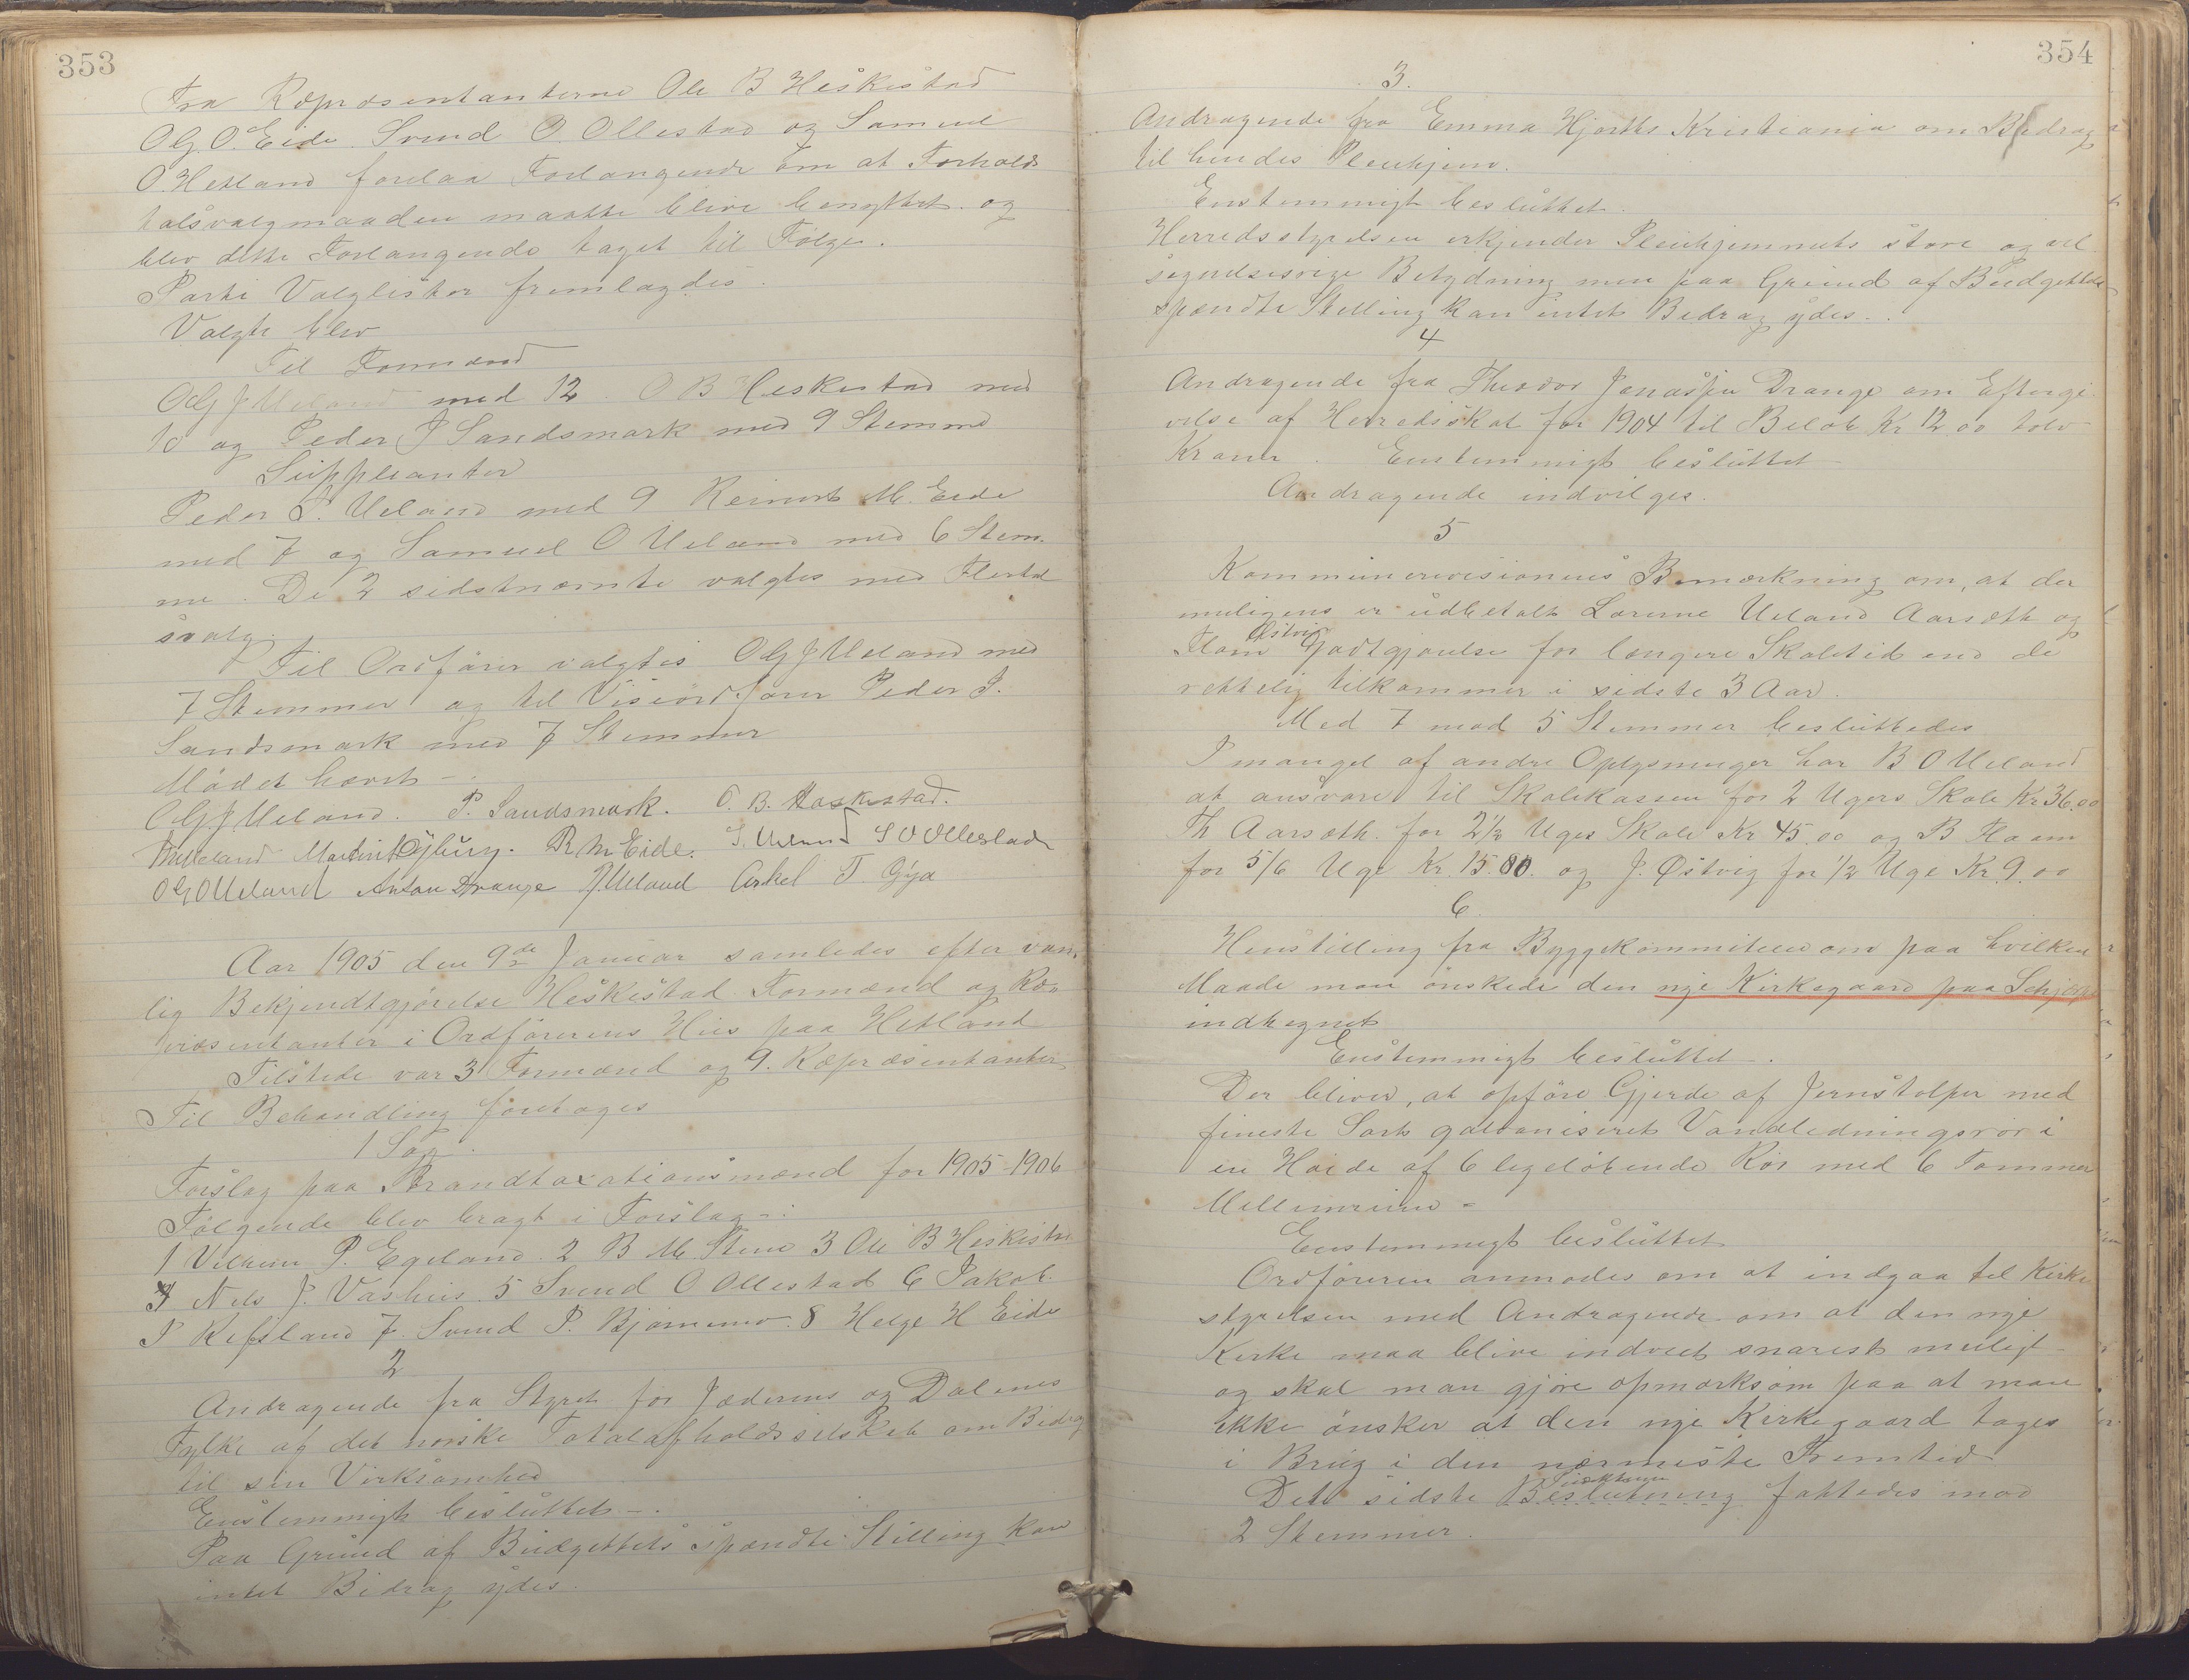 353
Fra Repræsentanterne Ole B Heskestad
O.G.O. Eide. Svend O. Ollestad og Samuel
O. Hetland forelaa Forlangende om at Forholds
talsvalgmaaden maatte blive benyttet og
blev dette Forlangende taget til Følge.
Parti Valglister fremlagdes.
Valgte blev
Til Formænd
O G J Ueland med 12. O B Heskestad med
10 og Peder J Sandsmark med 9 Stemme
Suppleanter
Peder S. Ueland med 9 Reinert M. Eide
med 7 og Samuel O Ueland med 6 Stem-
me. De 2 sidstnævnte valgtes med Flertal
svalg.
Til Ordfører valgtes O G J Ueland med
7 Stemmer og til Viseordfører Peder J.
Sandsmark med 7 Stemmer
Mødet hævet -
O G J Ueland. P. Sandsmark. O. B. Heskestad.
Ueland Martin Øgbury. R M Eide. S. Ueland S O Ollestad
O G O Ueland Anton Drange P. Ueland Askel T. Gya
Aar 1905 den 9de Januar samledes efter van,
lig Bekjendtgjørelse Heskestad Formænd og Re,,
præsentanter i Ordførerens Hus paa Hetland
Tilstede var 3 Formænd og 9. Repræsentanter
Til Behandling foretoges
1 Sag.
Forslag paa Brandtaxationsmænd for 1905-1906
Følgende blev bragt i Forslag -:
1 Vilhem P. Egeland 2 B M Stene 3 Ole B Heskestad
4 Nels J. Vashus. 5 Svend O Ollestad 6 Jakob
P Refsland 7. Svend P. Bjørnemo. 8 Helge H Eide
2
Andragende fra Styret for Jæderens og Dalenes
Fylke af det norske Totalafholdsselskab om Bidrag
til sin Virksomhed
Enstemmigt besluttet -.
Paa Grund af Budgettets spændte Stilling kan
intet Bidrag ydes.
354
3.
Andragende fra Emma Hjorths Kristiania om Bidrag
til hendes Pleiehjem.
Enstemmigt besluttet.
Herredsstyrelsen erkjender Pleiehjemmets store og vel
signelsesrige Betydning men paa Grund af Budgettets
spændte Stilling kan intet Bidrag ydes.
4
Andragende fra Theodor Jonassen Drange om Eftergi
velse af Herredsskat for 1904 til Beløb Kr 12 00 tolv
Kroner. Enstemmigt besluttet
Andragende indvilges.
5
Kommunerevisionens Bemærkning om, at der
muligens er udbetalt Lærerne Ueland Aarsæth og
Østvig
Flom Godtgjørelse for længere Skoletid end de
rettelig tilkommer i sidste 3 Aar.
Med 7 mod 5 Stemmer besluttedes
I mangel af andre Oplysninger har B O Ueland
at ansvare til Skolekassen for 2 Ugers Skole Kr 36,00
Th Aarsæth. for 2 1/2 Uges Skole Kr 45.00 og B Flaam
for 5/6 Uge Kr. 15.00. og J. Østvig for 1/2 Uge Kr. 9.00
6.
Henstilling fra Byggekommiteen om paa hvilken
Maade man ønskede den nye Kirkegaard paa
indhegnet
Enstemmigt besluttet.
Der bliver, at opføre Gjerde af Jernstolper med
fineste Sort galvaniseret Vandledningsrør i
en Høide af 6 ligeløbende Rør med 6 Tommer
Mellemrum =
Enstemmigt besluttet
Ordføreren anmodes om at indgaa til Kirke
styrelsen med Andragende om at den nye
Kirke maa blive indviet snarest muligt -
og skal man gjøre opmærksom paa at man
ikke ønsker at den nye Kirkegaard tages
i Brug i den nærmeste Fremtid
Den sidste Beslutning fattedes mod
2 Stemmer.